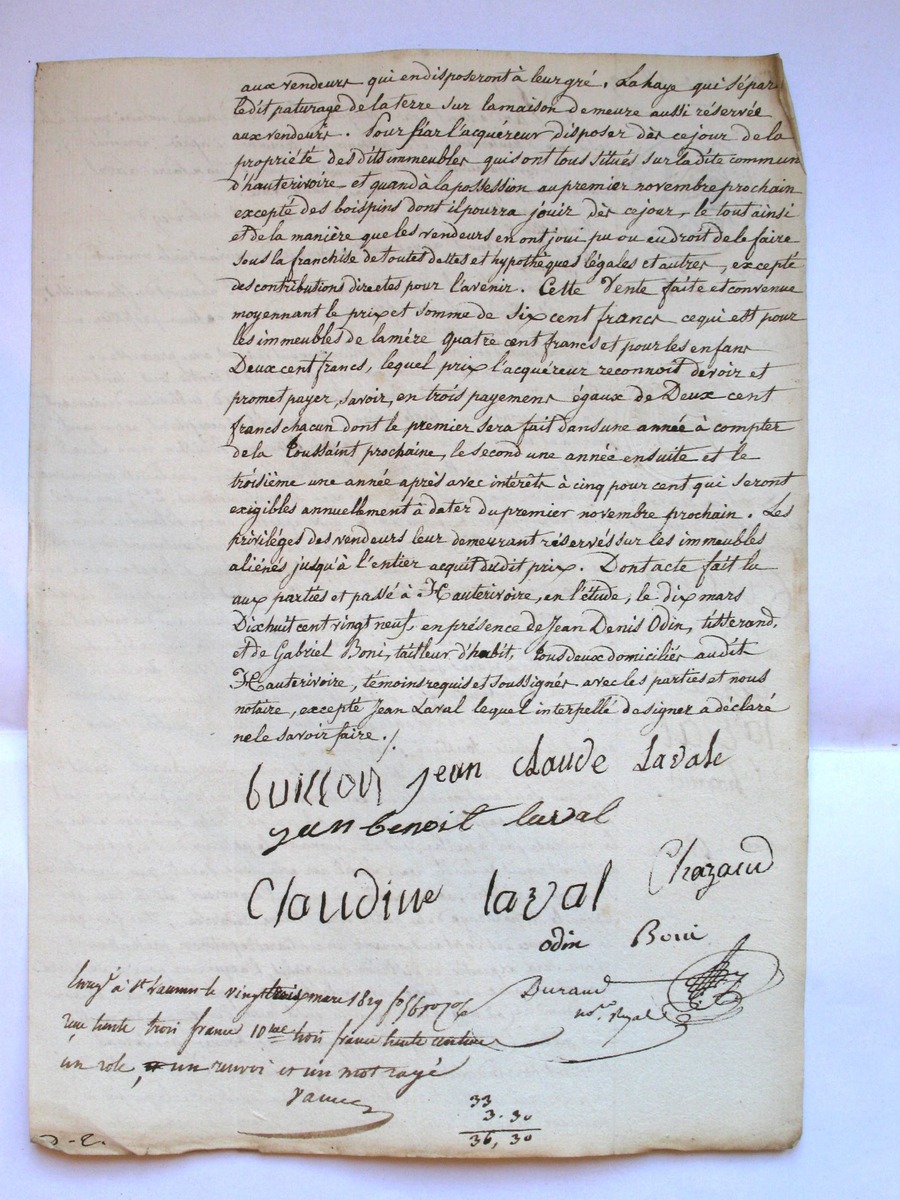 aux vendeurs qui en disposeront à leur gré. La haye qui sépar
le dit paturage de la terre sur la maison demeure aussi réservée
aux vendeurs. Pour par l'acquéreur disposer dès ce jour de la
propriété des dits immeubles qui sont tous situés sur la dite commun
d'hauterivoire et quand à la possession au premier novembre prochain
excepté des bois pins dont il pourra jouir dès ce jour, le tout ainsi
et de la manière que les vendeurs en ont joui pu ou eu droit de le faire
sous la franchise de toutes dettes et hypothèques légales et autres, excepté
des contributions directes pour l'avenir. Cette Vente faite et convenue
moyennant le prix et somme de Six cent francs ce qui est pour
les immeubles de la mére quatre cent francs et pour les enfans
Deux cent francs, lequel prix l'acquéreur reconnoit devoir et
promet payer, savoir, en trois payemens égaux de Deux cent
francs chacun dont le premier sera fait dans une année à compter
de la Toussaint prochaine, le second une année ensuite et le
troisième une année après avec intérêts à cinq pour cent qui seront
exigibles annuellement à dater du premier novembre prochain. Les
priviléges des vendeurs leur demeurant réservés sur les immeubles
aliénés jusqu'à l'entier acquit dudit prix. Dont acte fait lu
aux parties et passé à Hauterivoire, en l'étude, le dix mars
Dix huit cent vingt neuf, en présence de Jean Denis Odin, tisserand,
et de Gabriel Boni, tailleur d'habit, tous deux domiciliés audit
Hauterivoire, témoins requis et soussignés avec les parties et nous
notaire, excepté Jean Laval lequel interpellé de signer a déclaré
ne le savoir faire ./.
jean Claude Lavale
jan benoit laval
Claudine laval Chazaud
odin Boni
Durand
not. Royal
à St le vingt trois mars 1829
trente trois francs 10me trois francs trente centimes
un role, un renvoi et un mot rayé
33
3.30
36,30